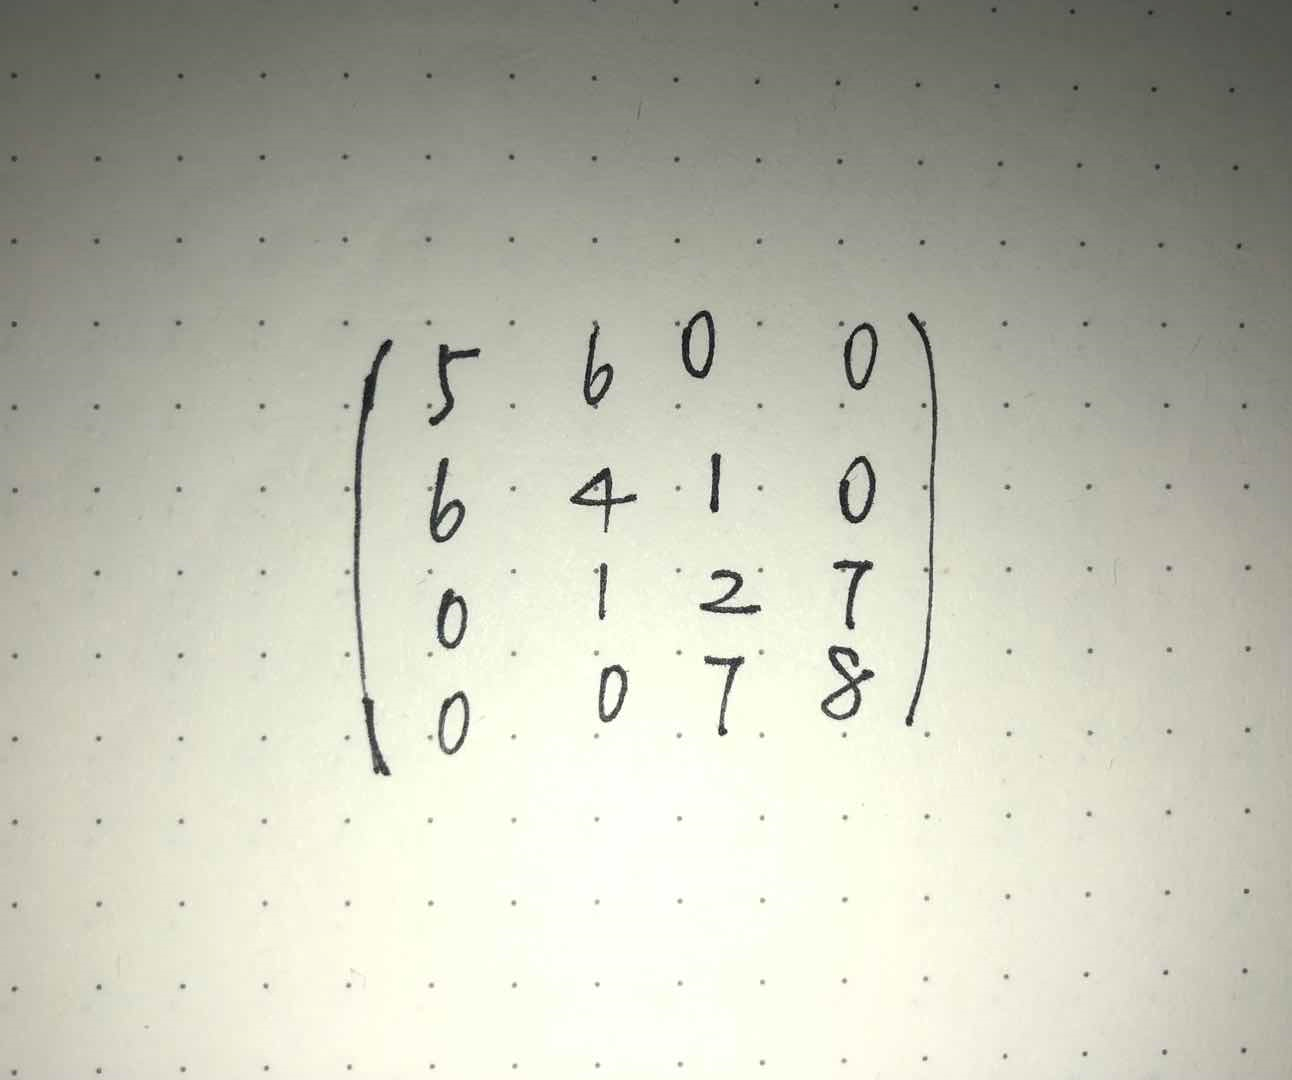 5 6 0 0
6 4 1 0
0 1 2 7
0 0 7 8